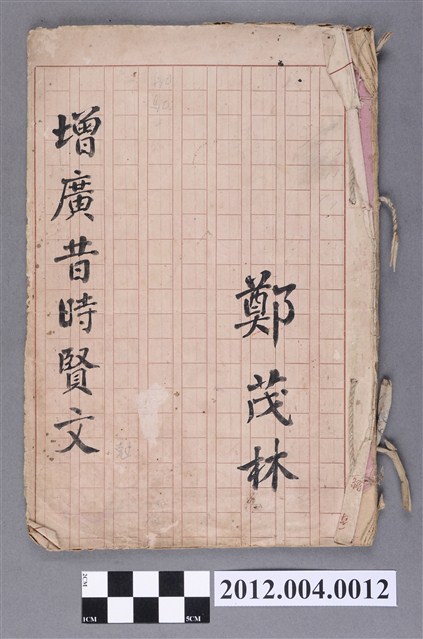 增廣昔時賢文
鄭茂林
2CM
1CM
5CM
2012.004.0012